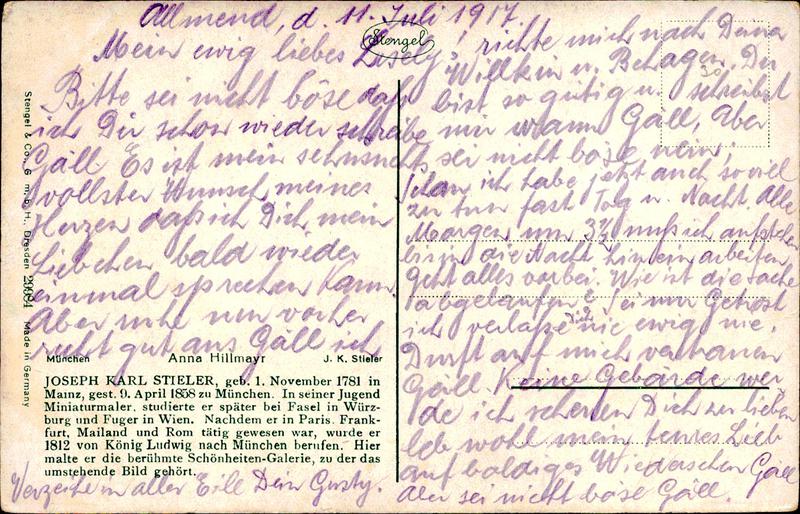 Allmend, d. 11. Juli 1917.
Stengel
Mein ewig liebes
Bitte sei nicht böse daß
ich Dir schon wieder schreibe
Gäll. Es ist mein sehnsuchts
vollster Wunsch meines
Herzen daß ich Dich mein
Liebchen bald wieder
einmal sprechen kann.
Aber ruhe nun vorher
recht gut aus Gäll ich
München Anna Hillmayr J. K. Stieler
JOSEPH KARL STIELER, geb. 1. November 1781 in
Mainz, gest. 9. April 1858 zu München. In seiner Jugend
Miniaturmaler, studierte er später bei Fasel in Würz-
burg und Fuger in Wien. Nachdem er in Paris, Frank-
furt, Mailand und Rom tätig gewesen war, wurde er
1812 von König Ludwig nach München berufen. Hier
malte er die berühmte Schönheiten-Galerie, zu der das
umstehende Bild gehört.
Verzeihe in aller Eill Dein Gusty.
richte mich nach Deine
u. Behagen. Du
bist so gütig u. schreibst
mir wann Gäll, Aber
sei nicht böse nein,
ich habe jetzt auch so viel
zu tun fast Tag u. Nacht. Alle
Morgen um 3½ muß ich aufstehen
bis in die Nacht hinein arbeiten
geht alles vorbei. Wie ist die sache
abgelaufen? Sei nur Getrost
ich verlaße Dich nie ewig nie.
Durft auf mich vertrauen
Gäll. Keine Gebärde wer
de ich scheuen Dich zu lieben
leb wohl mein teures Lieb
auf baldiges Wiedersehen Gäll
Aber sei nicht böse Gäll.
Stengel & Co., G. m. b. H., Dresden 29684 Made in Germany